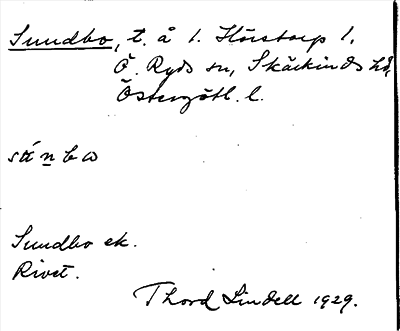 Sundbo, t. å 1. Hörstorp 1,
Ö. Ryds sn, Skärkinds hd,
Östergötl. l.
sú̱nbω
Sundbo ek.
Rivet.
Thord Lindell 1929.